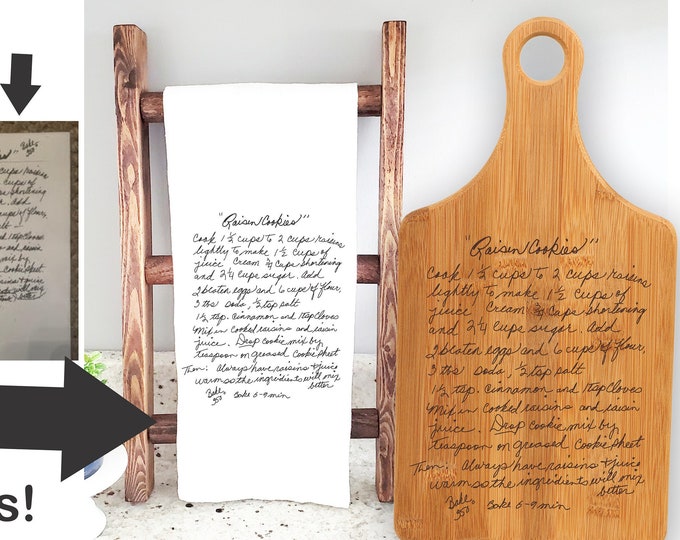 "Raisin Cookies"
Cook 1½ cups to 2 cups raisins
lightly to make 1½ cups of
juice Cream ¾ Cups shortening
and 2¼ cups sugar. Add
2 beaten eggs and 6 cups of flour,
3 tbs soda, ½ tsp salt
1½ tsp. cinnamon and 1 tsp Cloves
Mix in cooked raisins and raisin
juice. Drop cookie mix by
teaspoon on greased Cookie sheet
Then: Always have raisins + juice
warm so the ingredients will mix
better
Bake 350 Bake 6-9 min
"Raisin Cookies"
Cook 1½ cups to 2 cups raisins
lightly to make 1½ cups of
juice Cream ¾ Cups shortening
and 2¼ cups sugar. Add
2 beaten eggs and 6 cups of flour,
3 tbs soda, ½ tsp salt
1½ tsp. cinnamon and 1 tsp Cloves
Mix in cooked raisins and raisin
juice. Drop cookie mix by
teaspoon on greased Cookie sheet
Then: Always have raisins + juice
warm so the ingredients will mix
better
Bake 350 Bake 6-9 min
s!